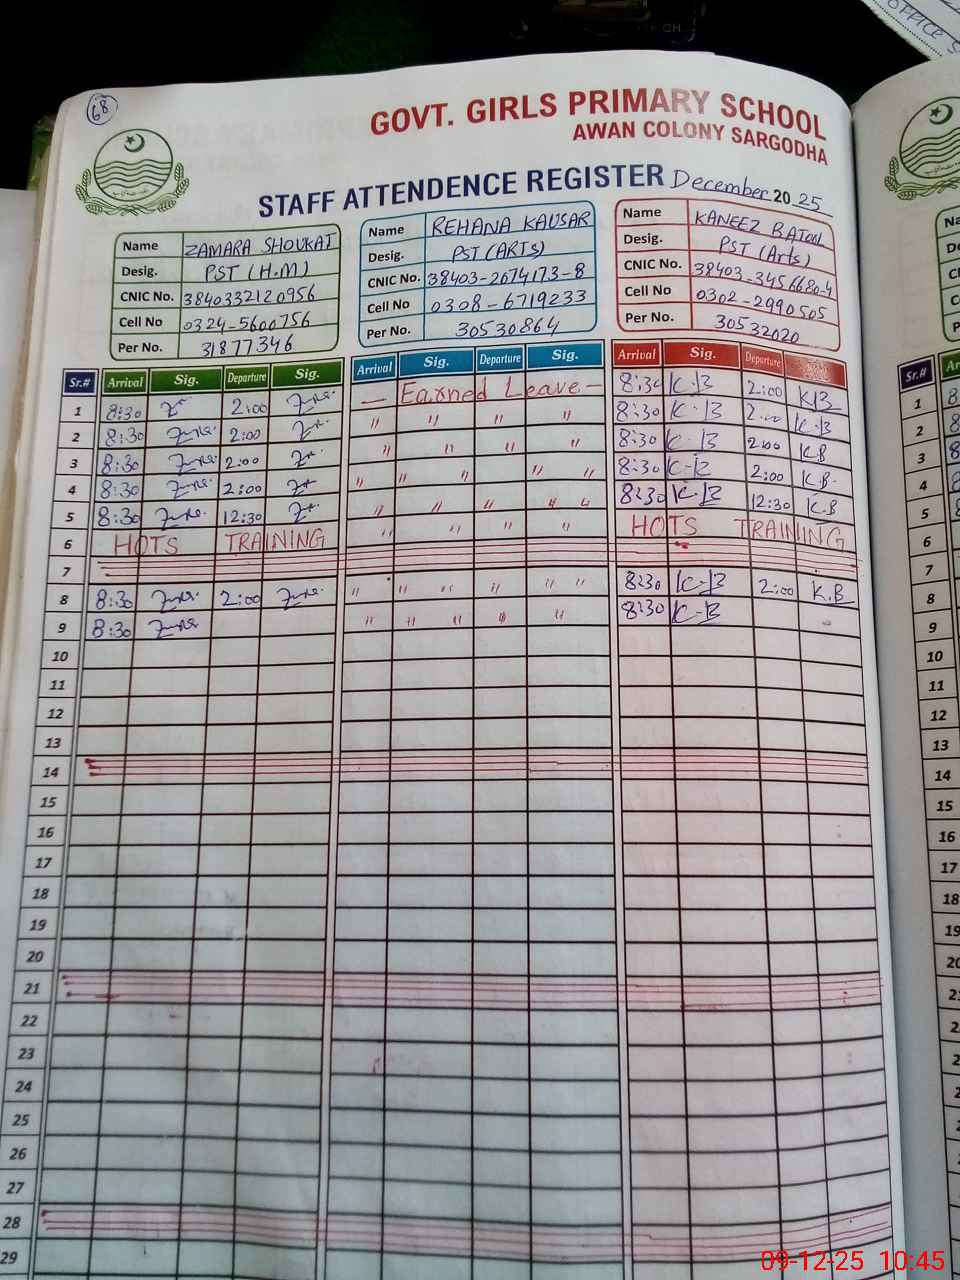 68
GOVT. GIRLS PRIMARY SCHOOL
AWAN COLONY SARGODHA
STAFF ATTENDENCE REGISTER December 2025
Name ZAMARA SHOUKAT
Desig. PST (H.M)
CNIC No. 3840332120956
Cell No 0324-5600756
Per No. 31877346
Name REHANA KAUSAR
Desig. PST (ARTS)
CNIC No. 38403-2074173-8
Cell No 0308-6719233
Per No. 30530864
Name KANEEZ BATOOL
Desig. PST (Arts)
CNIC No. 38403-3456680-4
Cell No 0302-2990505
Per No. 30532020
Sr.# Arrival Sig. Departure Sig. Arrival Sig. Departure Sig. Arrival Sig. Departure
1 8:30 2:00 — Earned Leave — 8:30 K.B 2:00 KB
2 8:30 2:00 " " " " 8:30 K.B 2:00 K.B
3 8:30 2:00 " " " " 8:30 K.B 2:00 K.B
4 8:30 2:00 " " " " " 8:30 K.B 2:00 K.B.
5 8:30 12:30 " " " " " 8:30 K.B 12:30 K.B
6 HOTS TRAINING " " " " HOTS TRAINING
7
8 8:30 2:00 " " " " " " 8:30 K.B 2:00 K.B
9 8:30 " " " " " 8:30 K.B
10
11
12
13
14
15
16
17
18
19
20
21
22
23
24
25
26
27
28
29
09-12-25 10:45